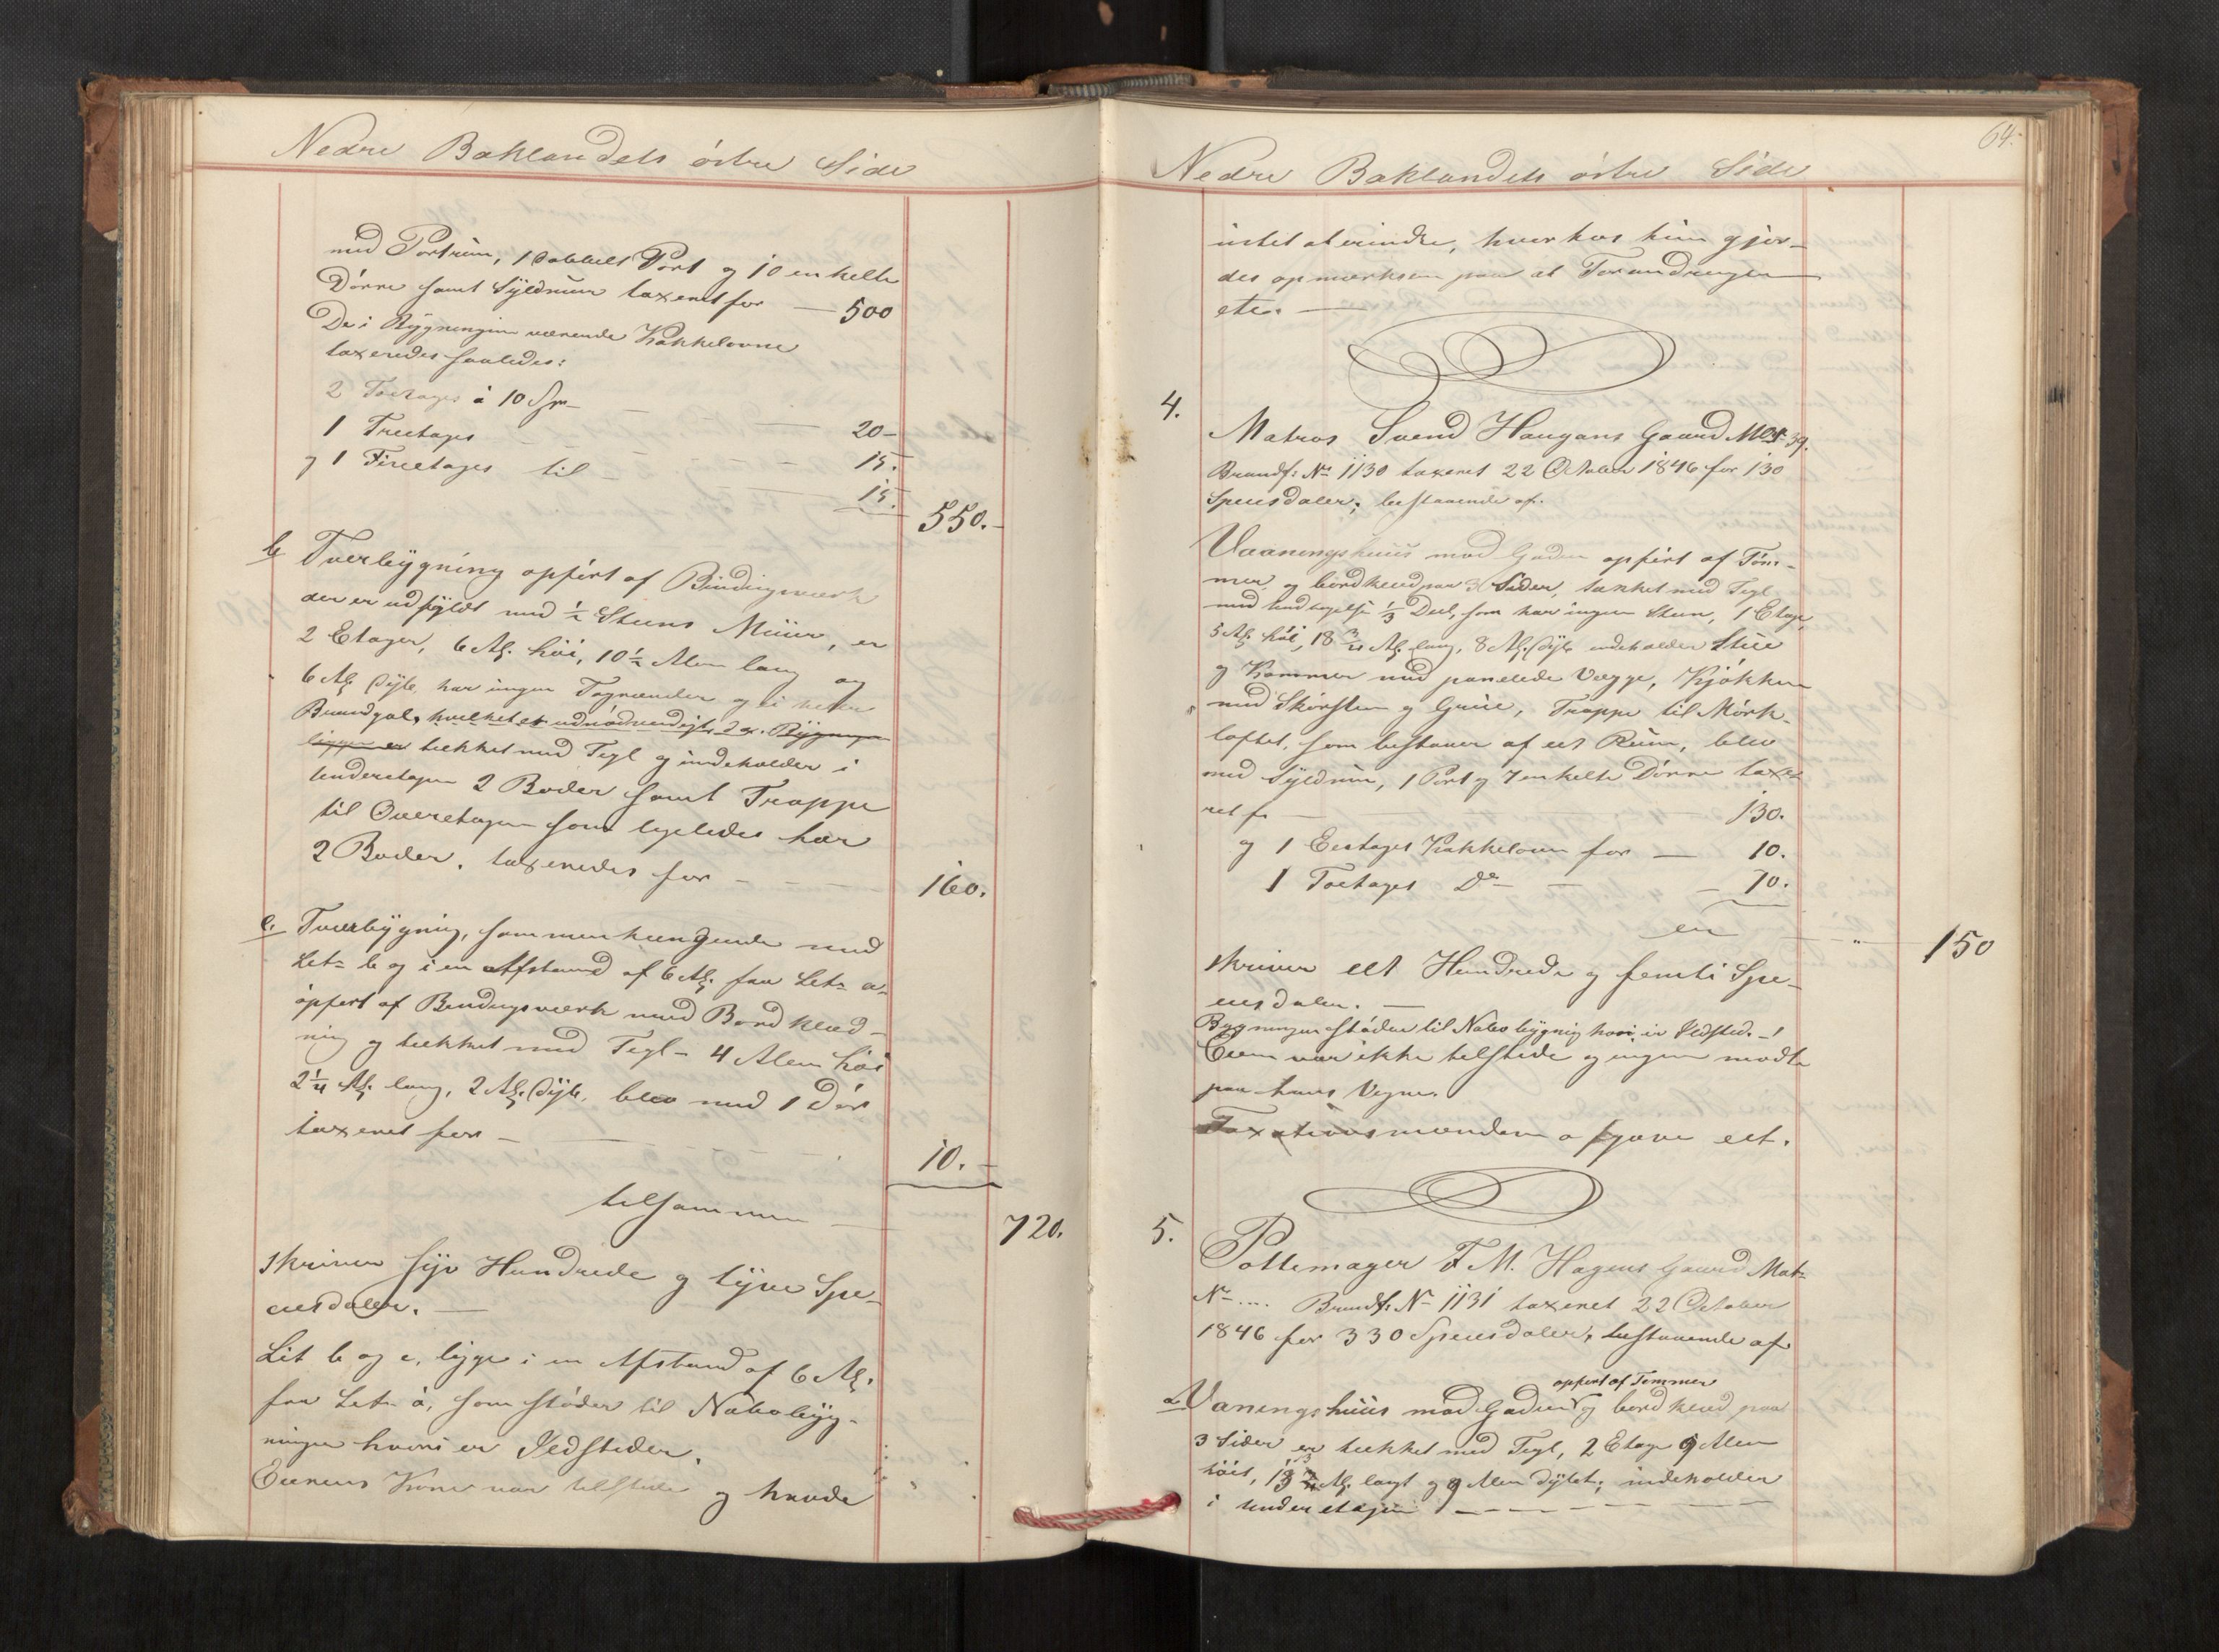 Nedre Baklandets östre Side
med Portrum, 1 dobbelt Port og 10 enkelte
Dörre samt Syldmuur taxeret for — 500
De i Bygningen værende Kakkelovne
taxeredes saaledes:
2 Toetages á 10 Spr — 20 –
1 Treetages — 15.
og 1 Fireetages til — 15.
550. –
b Tverbygning opfört af Bindingsværk
der er udfyldt med ½ Steens Muur, er
2 Etager, 6 Al. höi, 10½ Alen lang og
6 Al. dyb, har ingen Tagrender og ei heller
Brandgal, hvilket er unödvendigt, da Bygningen
ligger er tækket med Tegl og indeholder i
Underetagen 2 Boder samt Trappe
til Overetagen som ligeledes har
2 Boder. taxeredes for — 160.
c. Tverbygning, sammenhængende med
Litr b og i en Afstand af 6 Al. fra Litr a
opfört af Bindingsværk med Bordklæd-
ning og tækket med Tegl – 4 Alen höi
2¼ Al. lang, 2 Al. dyb, blev med 1 Dör
taxeret for — 10. –
tilsammen — 720.
skriver syv Hundrede og tyve Spe-
ciesdaler. —
Lit b og c, ligge i en Afstand af 6 Al.
fra Litr a, som stöder til Nabobyg-
ninger hvori er Ildsteder.
Eierens Kone var tilstede og havde
64.
Nedre Baklandets östre Side
intet at erindre, hverhos hun gjor-
des opmærksom paa at Forandringer
etc. —
4.
Matros Svend Haugans Gaard Mat 39.
Brandf: No 1130 taxeret 22 October 1846 for 130
Speciesdaler; bestaaende af.
Vaaningshuus mod Gaden opfört af Töm-
mer og bordklædt paa 3 Sider, tækket med Tegl
med Undtagelse ⅓ Deel, som har ingen Steen, 1 Etage,
5 Al. höi, 18 ¾ Al. lang, 8 Al. dyb indeholder Stue
og Kammer med panelede Vægge, Kjökken
med Skorsteen og Grue, Trappe til Mörk-
loftet, som bestaaer af eet Rum, blev
med Syldmur, 1 Port og 7 enkelte Dörre taxe-
ret for — 130.
og 1 Eetages Kakkelovn for — 10.
1 Toetages Do — 10.
er — 150
skriver eet Hundrede og femti Spe-
ciesdaler. —
Bygningen stöder til Nabobygning hvori er Ildsted. –
Eieren var ikke tilstede og ingen mödte
paa hans Vegne.
Taxationsmændene afgave etc.
5.
Pottemager F. M. Hagens Gaard Matr
No .... Brandf: No 1131 taxeret 22 October
1846 for 330 Speciesdaler, bestaaende af
opfört af Tømmer
a Vaningshuus mod Gaden og bordklædt paa
3 Sider er tækket med Tegl, 2 Etage 9 Alen
höit, 13 ¾ Al. langt og 9 Alen dybt; indeholder
i Underetagen — — — —